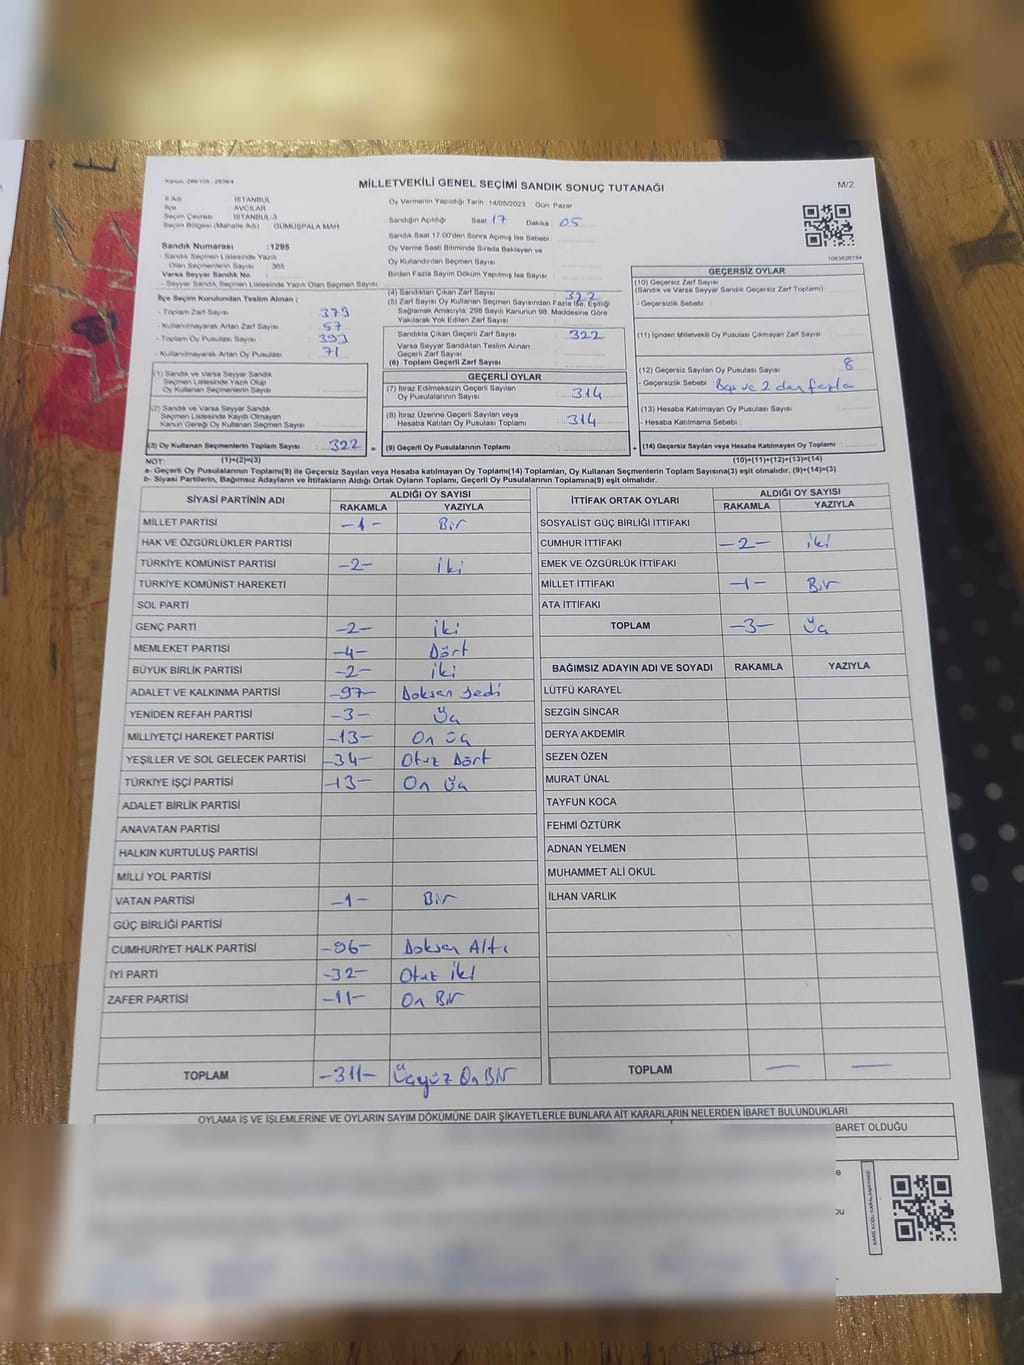 MİLLETVEKİLİ GENEL SEÇİMİ SANDIK SONUÇ TUTANAĞI
M/2
İl Adı : İSTANBUL
İlçe : AVCILAR
Seçim Çevresi : İSTANBUL-3
Seçim Bölgesi (Mahalle Adı) : GÜMÜŞPALA MAH.
Oy Vermenin Yapıldığı Tarih : 14/05/2023 Gün : Pazar
Sandığın Açıldığı Saat 17 Dakika : 05
Sandık Saat 17:00'den Sonra Açılmış İse Sebebi :
Oy Verme Saati Bitiminde Sırada Bekleyen ve
Oy Kullandırılan Seçmen Sayısı
Birden Fazla Sayım Döküm Yapılmış İse Sayısı :
Sandık Numarası : 1295
- Sandık Seçmen Listesinde Yazılı
Olan Seçmenlerin Sayısı : 365
Varsa Seyyar Sandık No :
- Seyyar Sandık Seçmen Listesinde Yazılı Olan Seçmen Sayısı
İlçe Seçim Kurulundan Teslim Alınan :
- Toplam Zarf Sayısı : 379
- Kullanılmayarak Artan Zarf Sayısı : 57
- Toplam Oy Pusulası Sayısı : 393
- Kullanılmayarak Artan Oy Pusulası : 71
(1) Sandık ve Varsa Seyyar Sandık
Seçmen Listesinde Yazılı Olup
Oy Kullanan Seçmenlerin Sayısı
(2) Sandık ve Varsa Seyyar Sandık
Seçmen Listesinde Kayıtlı Olmayan
Kanun Gereği Oy Kullanan Seçmen Sayısı
(3) Oy Kullanan Seçmenlerin Toplam Sayısı : 322 =
(4) Sandıktan Çıkan Zarf Sayısı : 322
(5) Zarf Sayısı Oy Kullanan Seçmen Sayısından Fazla İse, Eşitliği
Sağlamak Amacıyla, 298 Sayılı Kanunun 98. Maddesine Göre
Yakılarak Yok Edilen Zarf Sayısı :
Sandıkta Çıkan Geçerli Zarf Sayısı : 322
Varsa Seyyar Sandıktan Teslim Alınan
Geçerli Zarf Sayısı
(6) Toplam Geçerli Zarf Sayısı
GEÇERLİ OYLAR
(7) İtiraz Edilmeksizin Geçerli Sayılan
Oy Pusulalarının Sayısı : 314
(8) İtiraz Üzerine Geçerli Sayılan veya
Hesaba Katılan Oy Pusulası Toplamı : 314
(9) Geçerli Oy Pusulalarının Toplamı +
1063626784
GEÇERSİZ OYLAR
(10) Geçersiz Zarf Sayısı
(Sandık ve Varsa Seyyar Sandık Geçersiz Zarf Toplamı) :
- Geçersizlik Sebebi :
(11) İçinden Milletvekili Oy Pusulası Çıkmayan Zarf Sayısı :
(12) Geçersiz Sayılan Oy Pusulası Sayısı : 8
- Geçersizlik Sebebi Boş ve 2 den fazla
(13) Hesaba Katılmayan Oy Pusulası Sayısı :
- Hesaba Katılmama Sebebi :
(14) Geçersiz Sayılan veya Hesaba Katılmayan Oy Toplamı :
NOT: (1)+(2)=(3) (10)+(11)+(12)+(13)=(14)
a- Geçerli Oy Pusulalarının Toplamı(9) ile Geçersiz Sayılan veya Hesaba katılmayan Oy Toplamı(14) Toplamları, Oy Kullanan Seçmenlerin Toplam Sayısına(3) eşit olmalıdır. (9)+(14)=(3)
b- Siyasi Partilerin, Bağımsız Adayların ve İttifakların Aldığı Ortak Oyların Toplamı, Geçerli Oy Pusulalarının Toplamına(9) eşit olmalıdır.
SİYASİ PARTİNİN ADI ALDIĞI OY SAYISI
RAKAMLA YAZIYLA
MİLLET PARTİSİ -1- Bir
HAK VE ÖZGÜRLÜKLER PARTİSİ
TÜRKİYE KOMÜNİST PARTİSİ -2- iki
TÜRKİYE KOMÜNİST HAREKETİ
SOL PARTİ
GENÇ PARTİ -2- iki
MEMLEKET PARTİSİ -4- Dört
BÜYÜK BİRLİK PARTİSİ -2- iki
ADALET VE KALKINMA PARTİSİ -97- Doksan Yedi
YENİDEN REFAH PARTİSİ -3- Üç
MİLLİYETÇİ HAREKET PARTİSİ -13- On üç
YEŞİLLER VE SOL GELECEK PARTİSİ -34- Otuz Dört
TÜRKİYE İŞÇİ PARTİSİ -13- On Üç
ADALET BİRLİK PARTİSİ
ANAVATAN PARTİSİ
HALKIN KURTULUŞ PARTİSİ
MİLLİ YOL PARTİSİ
VATAN PARTİSİ -1- Bir
GÜÇ BİRLİĞİ PARTİSİ
CUMHURİYET HALK PARTİSİ -96- Doksan Altı
İYİ PARTİ -32- Otuz iki
ZAFER PARTİSİ -11- On Bir
TOPLAM -311- Üçyüz On Bir
İTTİFAK ORTAK OYLARI ALDIĞI OY SAYISI
RAKAMLA YAZIYLA
SOSYALİST GÜÇ BİRLİĞİ İTTİFAKI
CUMHUR İTTİFAKI -2- iki
EMEK VE ÖZGÜRLÜK İTTİFAKI
MİLLET İTTİFAKI -1- Bir
ATA İTTİFAKI
TOPLAM -3- Üç
BAĞIMSIZ ADAYIN ADI VE SOYADI RAKAMLA YAZIYLA
LÜTFÜ KARAYEL
SEZGİN SİNCAR
DERYA AKDEMİR
SEZEN ÖZEN
MURAT ÜNAL
TAYFUN KOCA
FEHMİ ÖZTÜRK
ADNAN YELMEN
MUHAMMET ALİ OKUL
İLHAN VARLIK
TOPLAM — —
OYLAMA İŞ VE İŞLEMLERİNE VE OYLARIN SAYIM DÖKÜMÜNE DAİR ŞİKAYETLERLE BUNLARA AİT KARARLARIN NELERDEN İBARET BULUNDUKLARI
BARET OLDUĞU